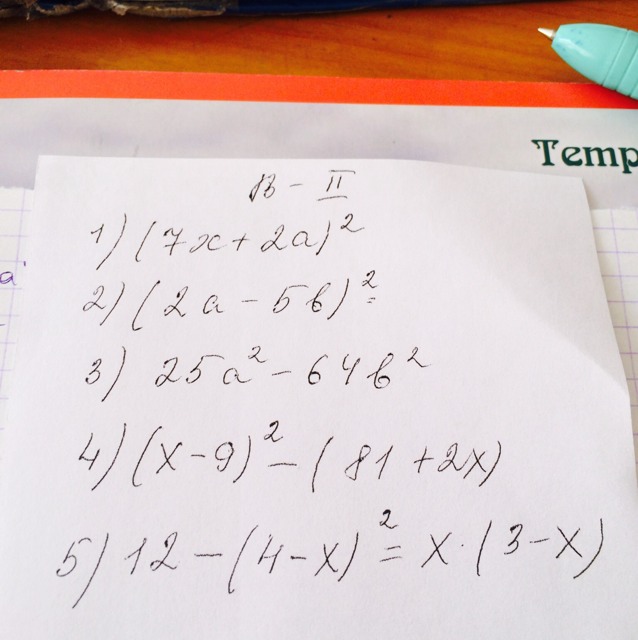 Temp
В - II
1) (7x + 2a)²
a
2) (2a - 5в)² =
3) 25a² - 64в²
4) (x - 9)² - (81 + 2x)
5) 12 - (4 - x)² = x · (3 - x)